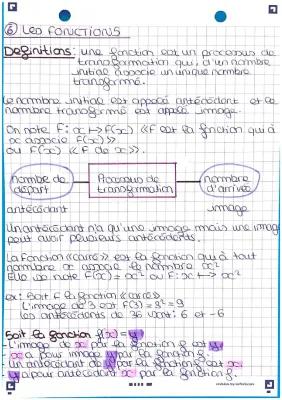 ⑥ Les FONCTIONS
Definitions: une fonction est un processus de
transformation qui, à un nombre
initial associe un unique nombre
transformé.
Le nombre initial est appelé antécédent et le
nombre transformé est appelé image.
On note F: x ↦ F(x) « F est la fonction qui à
x associe F(x) »
ou F(x) « F de x ».
nombre de départ
Processus de transformation
nombre d'arrivée
antécédent
image
Un antécédent n'a qu'une image mais une image
peut avoir plusieurs antécédents.
La fonction «carré» est la fonction qui à tout
nombre x associe le nombre x²
Elle se note F(x) = x² ou F: x ↦ x²
ex: Soit F la fonction «carré».
L'image de 3 est F(3) = 3² = 9
Les antécédents de 36 sont: 6 et -6
Soit la fonction f(x) = y
- L'image de x par la fonction f est y.
- x a pour image y par la fonction f.
- Un antécédent de y par la fonction f est x
- y a pour antécédent x par la fonction f.